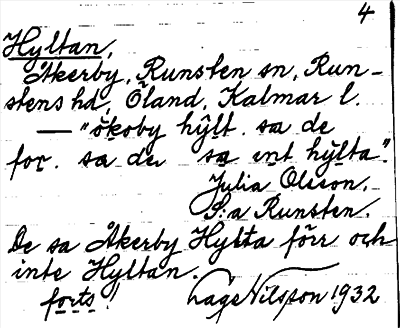 4
Hyltan,
Åkerby, Runsten sn, Run-
stens hd, Öland, Kalmar l.
— "åkoby hylt. sa de
for. sa de sa int hylta".
Julia Olsson,
S:a Runsten.
De sa Åkerby Hylta förr och
inte Hyltan.
forts! Lage Nilsson 1932